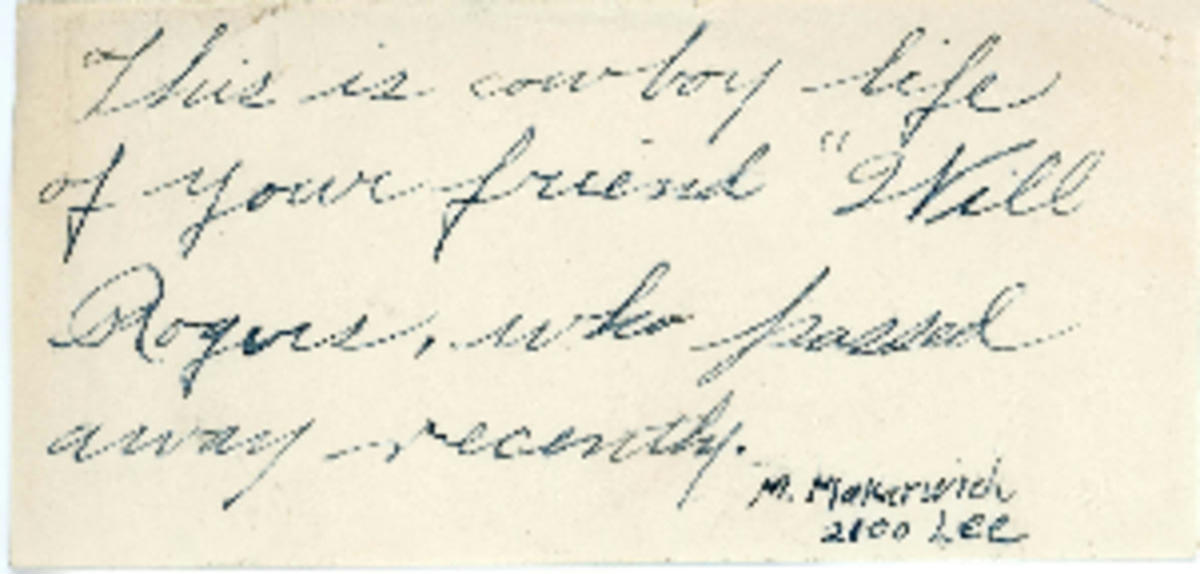 This is cowboy life
of your friend "Will
Rogers, who passed
away recently.
M. Makarwich
2100 Lee